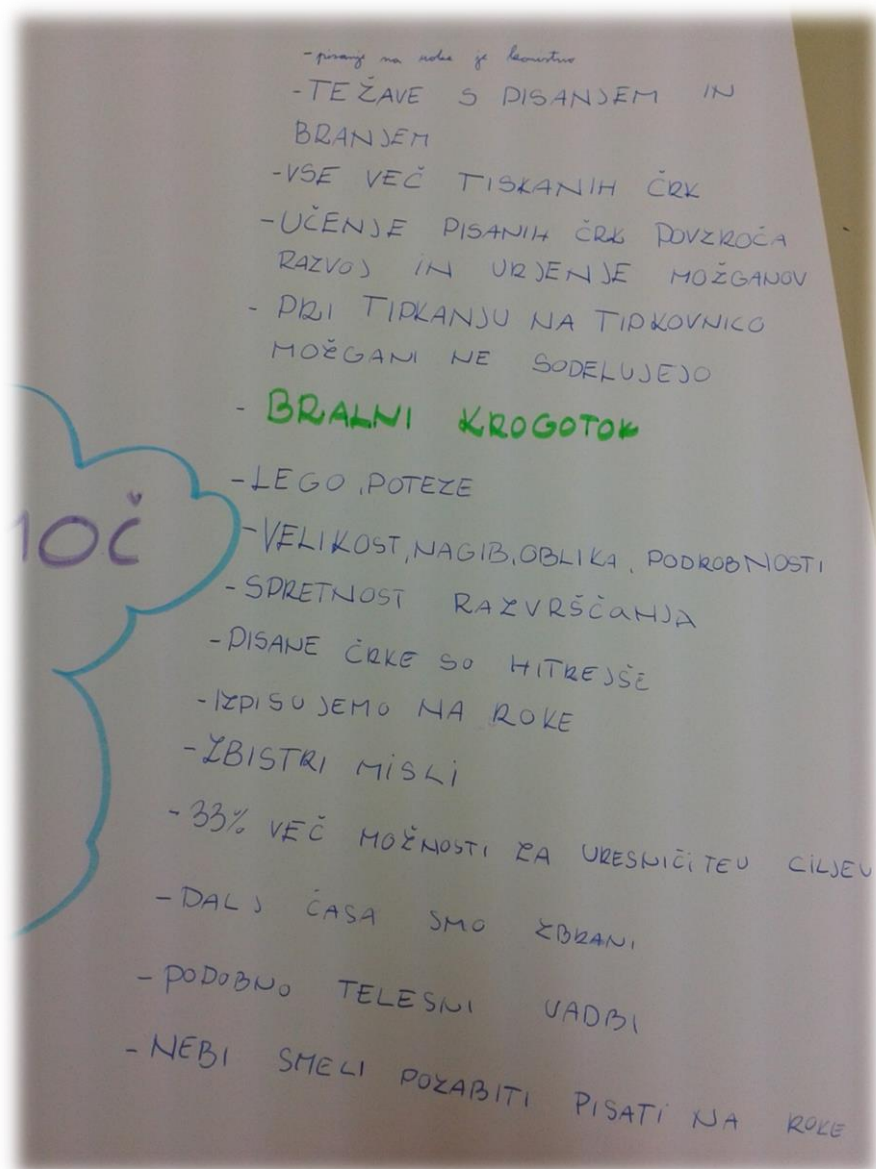 - pisanje na roke je koristno
- TEŽAVE S PISANJEM IN
BRANJEM
- VSE VEČ TISKANIH ČRK
- UČENJE PISANIH ČRK POVZROČA
RAZVOJ IN URJENJE MOŽGANOV
- PRI TIPKANJU NA TIPKOVNICO
MOŽGANI NE SODELUJEJO
- BRALNI KROGOTOK
- LEGO, POTEZE
- VELIKOST, NAGIB, OBLIKA, PODROBNOSTI
- SPRETNOST RAZVRŠČANJA
- PISANE ČRKE SO HITREJŠE
- IZPISUJEMO NA ROKE
- ZBISTRI MISLI
- 33% VEČ MOŽNOSTI ZA URESNIČITEV CILJEV
- DALJ ČASA SMO ZBRANI
- PODOBNO TELESNI VADBI
- NEBI SMELI POZABITI PISATI NA ROKE